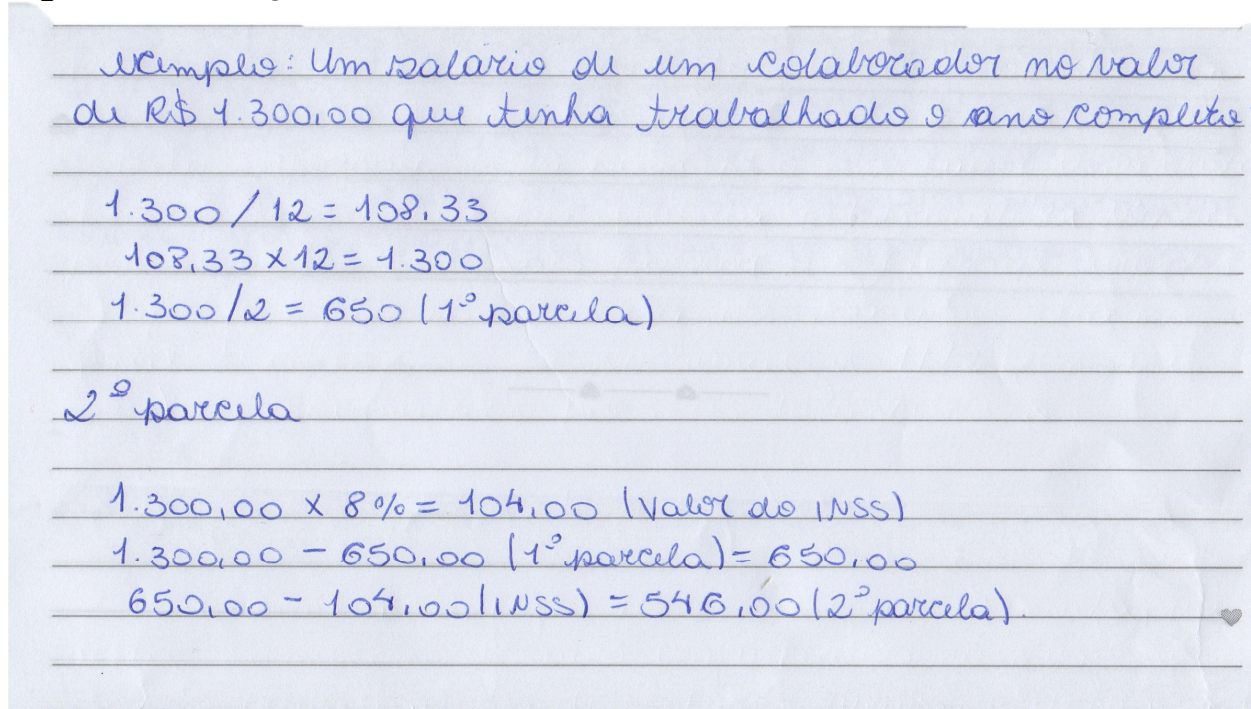 exemplo: Um salário de um colaborador no valor
de R$ 1.300,00 que tenha trabalhado o ano completo
1.300 / 12 = 108,33
108,33 x 12 = 1.300
1.300/2 = 650 (1º parcela)
2º parcela
1.300,00 x 8% = 104,00 (Valor do INSS)
1.300,00 - 650,00 (1º parcela) = 650,00
650,00 - 104,00 (INSS) = 546,00 (2º parcela).